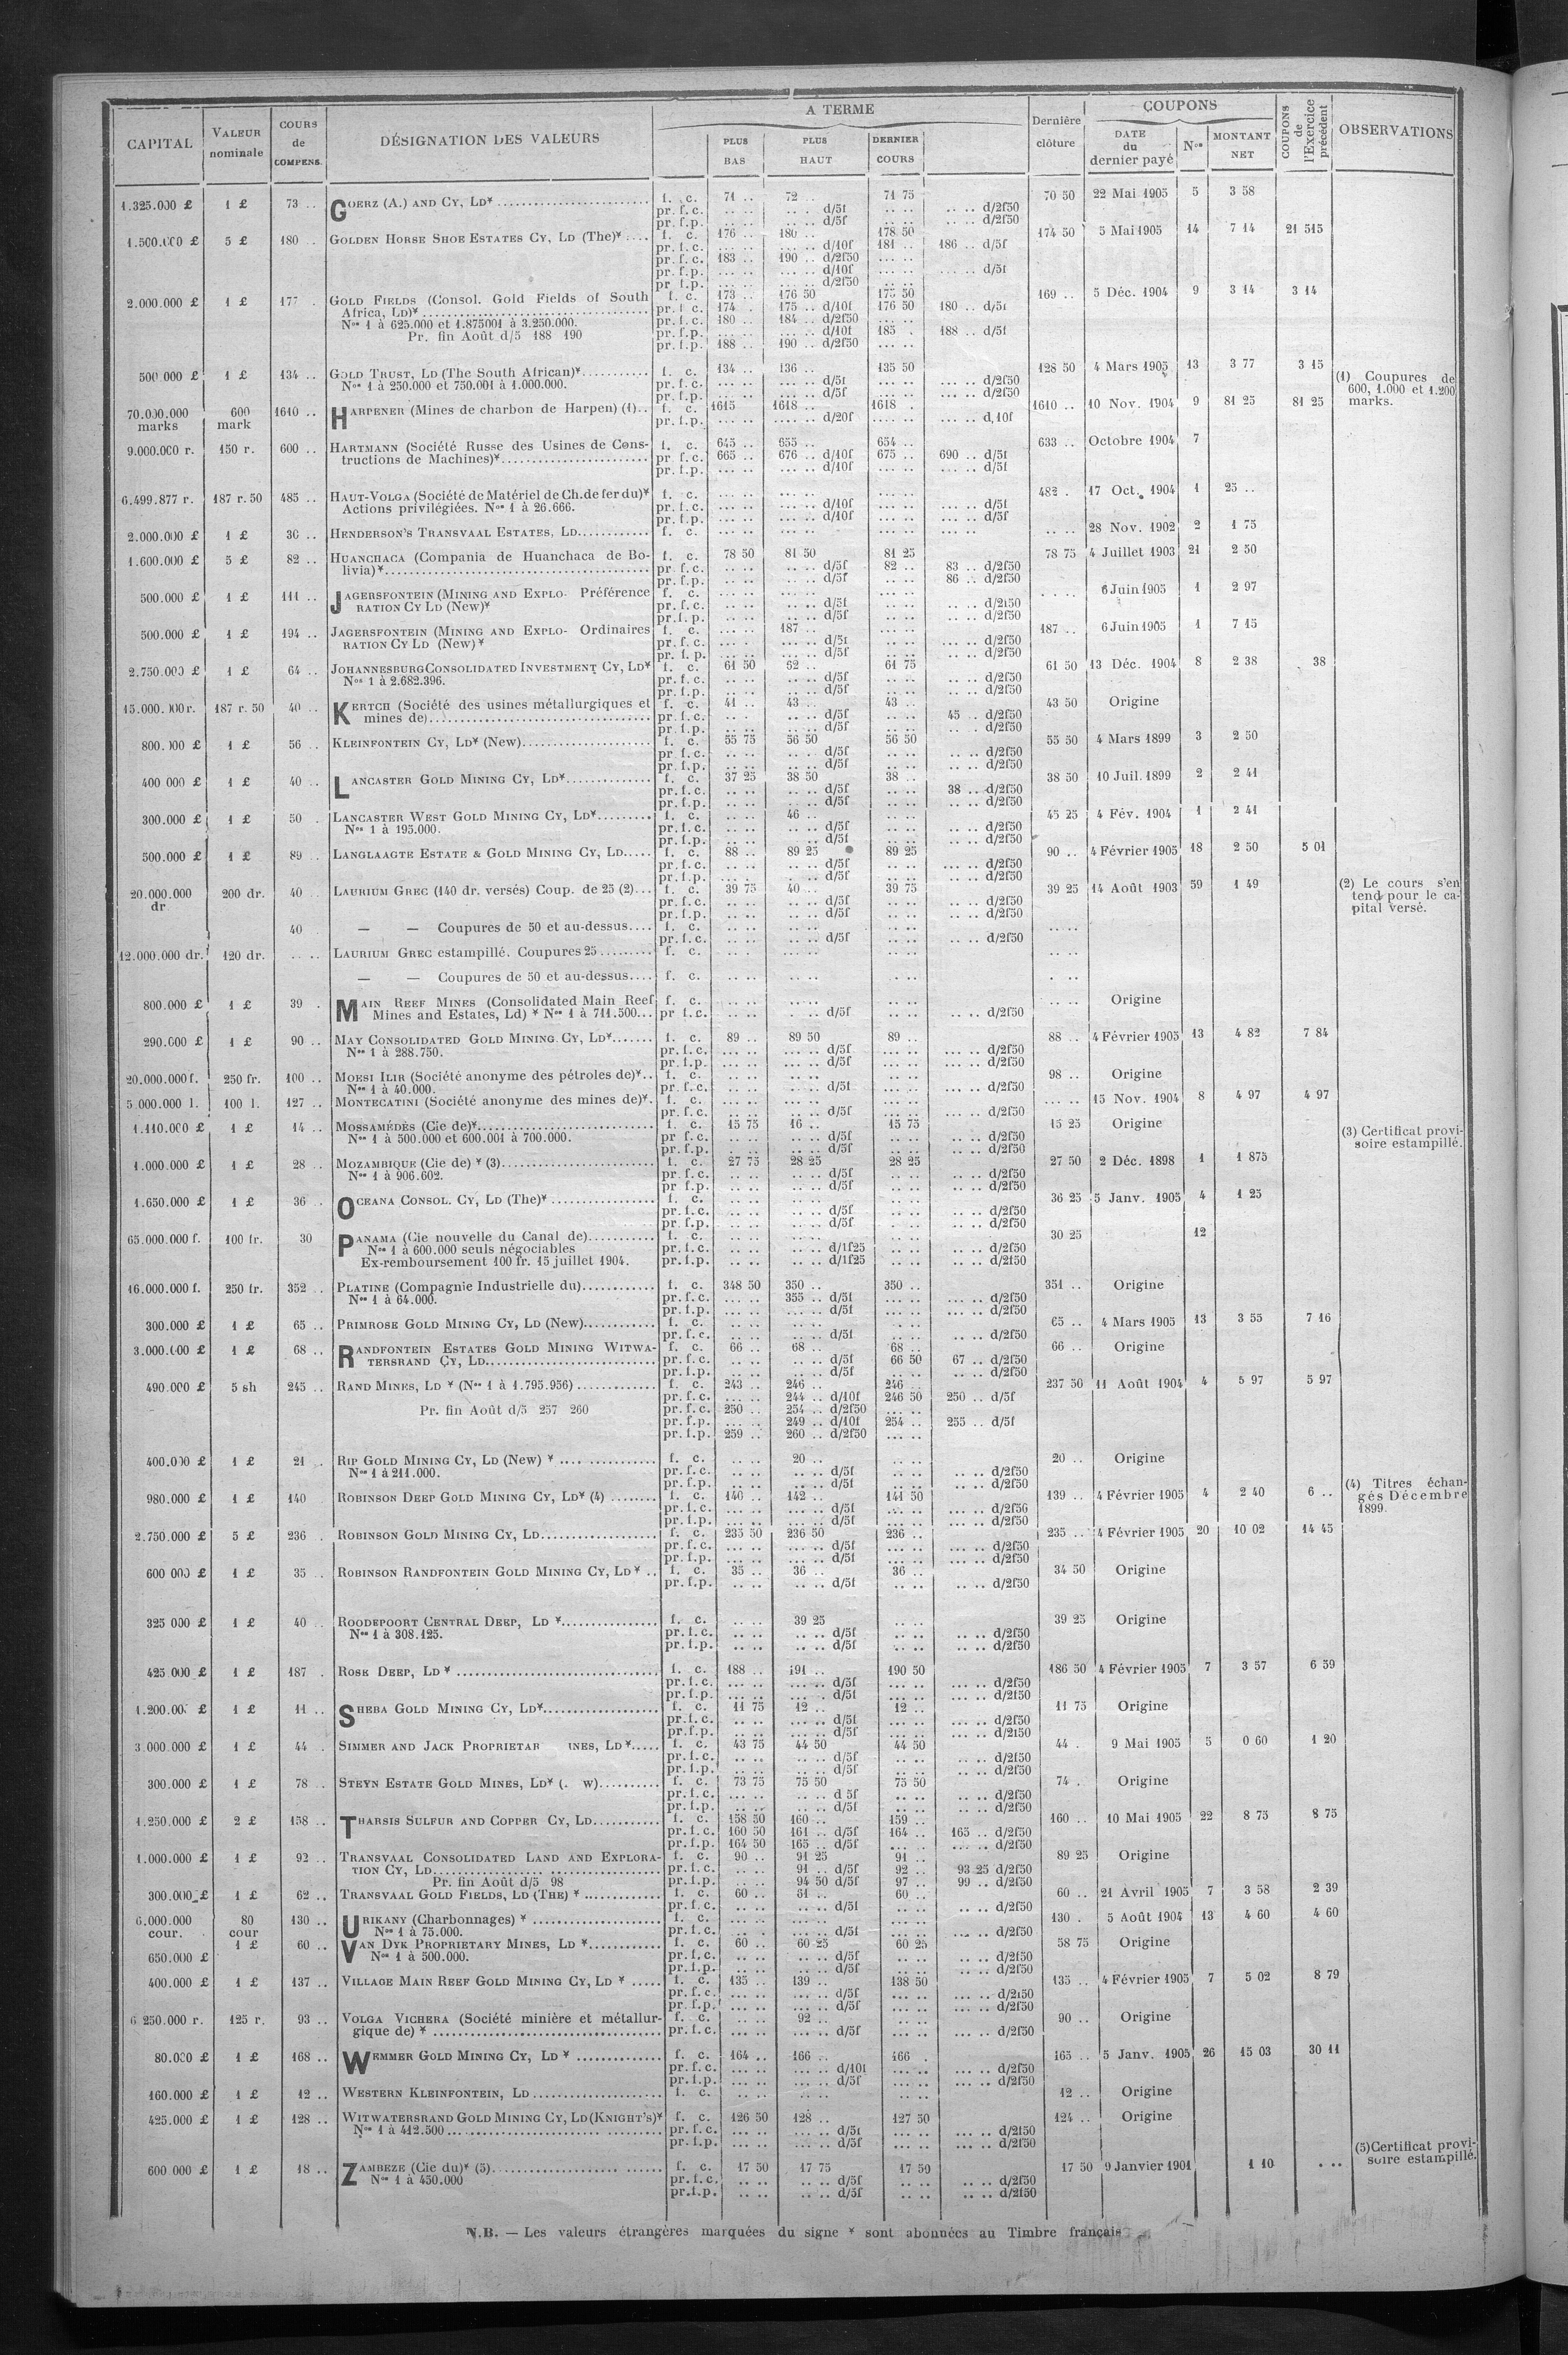 CAPITAL | VALEUR nominale | COURS de COMPENS. | DÉSIGNATION DES VALEURS | A TERME | PLUS BAS | PLUS HAUT | DERNIER COURS | Dernière clôture | COUPONS | DATE du dernier payé | Nos | MONTANT NET | COUPONS de l'Exercice précédent | OBSERVATIONS
1.325.000 £ 1 £ 73 .. GOERZ (A.) AND CY, LD* f. c. 71 .. 72 .. 71 75 70 50 22 Mai 1905 5 3 58
pr. f.c. .. .. .. .. d/5f .. .. .. .. d/2f50
pr. f.p. .. .. .. .. d/5f .. .. .. .. d/2f50
1.500.000 £ 5 £ 180 .. GOLDEN HORSE SHOE ESTATES CY, LD (The)* f. c. 176 .. 180 .. 178 50 174 50 5 Mai 1905 14 7 14 21 515
pr. f.c. ... .. ... .. d/10f 181 .. 186 .. d/5f
pr. f.c. 183 .. 190 .. d/2f50 ... ..
pr. f.p. ... .. ... .. d/10f ... .. ... .. d/5f
pr. f.p. ... .. ... .. d/2f50 ... ..
2.000.000 £ 1 £ 177 . GOLD FIELDS (Consol. Gold Fields of South f. c. 173 .. 176 50 175 50 169 .. 5 Déc. 1904 9 3 14 3 14
Africa, LD)* pr. f.c. 174 . 175 .. d/10f 176 50 180 .. d/5f
Nos 1 à 625.000 et 1.875001 à 3.250.000. pr. f.c. 180 .. 184 .. d/2f50 ... ..
Pr. fin Août d/5 188 190 pr. f.p. ... .. ... .. d/10f 185 . 188 .. d/5f
pr. f.p. 188 .. 190 .. d/2f50 ... ..
500.000 £ 1 £ 134 .. GOLD TRUST, LD (The South African)* f. c. 134 .. 136 .. 135 50 128 50 4 Mars 1905 13 3 77 3 15
Nos 1 à 250.000 et 750.001 à 1.000.000. pr. f.c. ... .. ... .. d/5f ... .. ... .. d/2f50
pr. f.p. ... .. ... .. d/5f ... .. ... .. d/2f50
(1) Coupures de
600, 1.000 et 1.200
marks.
70.000.000 marks 600 mark 1610 .. HARPENER (Mines de charbon de Harpen) (1).. f. c. 1615 1618 .. 1618 . 1610 .. 10 Nov. 1904 9 81 25 81 25
pr. f.p. ... .. .... .. d/20f ... .. ... .. d,10f
9.000.000 r. 150 r. 600 .. HARTMANN (Société Russe des Usines de Cons- f. c. 645 .. 655 .. 654 .. 633 .. Octobre 1904 7
tructions de Machines)* pr. f.c. 665 .. 676 .. d/10f 675 .. 690 .. d/5f
pr. f.p. ... .. ... .. d/10f ... .. ... .. d/5f
6.499.877 r. 187 r. 50 485 .. HAUT-VOLGA (Société de Matériel de Ch. de fer du)* f. c. ... .. ... .. ... .. 482 . 17 Oct. 1904 1 25 ..
Actions privilégiées. Nos 1 à 26.666. pr. f.c. ... .. ... .. d/10f ... .. ... .. d/5f
pr. f.p. ... .. ... .. d/10f ... .. ... .. d/5f
2.000.000 £ 1 £ 30 .. HENDERSON'S TRANSVAAL ESTATES, LD f. c. ... .. ... .. ... .. .. .. 28 Nov. 1902 2 1 75
1.600.000 £ 5 £ 82 .. HUANCHACA (Compania de Huanchaca de Bo- f. c. 78 50 81 50 81 25 78 75 4 Juillet 1903 21 2 50
livia)* pr. f.c. .. .. .. .. d/5f 82 .. 83 .. d/2f50
pr. f.p. .. .. .. .. d/5f .. .. 86 .. d/2f50
500.000 £ 1 £ 111 .. JAGERSFONTEIN (MINING AND EXPLO- Préférence f. c. ... .. ... .. ... .. . . . . 6 Juin 1905 1 2 97
RATION CY LD (New)* pr. f.c. ... .. ... .. d/5f ... .. .. .. d/2f50
pr. f.p. ... .. ... .. d/5f ... .. .. .. d/2f50
500.000 £ 1 £ 194 .. JAGERSFONTEIN (MINING AND EXPLO- Ordinaires f. c. ... .. 187 .. ... .. 187 .. 6 Juin 1905 1 7 15
RATION CY LD (New)* pr. f.c. ... . ... .. d/5f ... .. ... .. d/2f50
pr. f.p. ... .. ... .. d/5f ... .. ... .. d/2f50
2.750.000 £ 1 £ 64 .. JOHANNESBURG CONSOLIDATED INVESTMENT CY, LD* f. c. 61 50 62 .. 61 75 61 50 13 Déc. 1904 8 2 38 . 38
Nos 1 à 2.682.396. pr. f.c. .. .. .. .. d/5f .. .. .. .. d/2f50
pr. f.p. .. .. .. .. d/5f .. .. .. .. d/2f50
15.000.000 r. 187 r. 50 40 .. KERTCH (Société des usines métallurgiques et f. c. 41 .. 43 .. 43 .. 43 50 Origine
mines de) pr. f.c. .. . .. .. d/5f .. .. 45 .. d/2f50
pr. f.p. .. .. .. .. d/5f .. .. .. . d/2f50
800.000 £ 1 £ 56 .. KLEINFONTEIN CY, LD* (New) f. c. 55 75 56 50 56 50 55 50 4 Mars 1899 3 2 50
pr. f.c. .. .. .. .. d/5f .. .. .. .. d/2f50
pr. f.p. .. .. .. .. d/5f .. .. .. .. d/2f50
400 000 £ 1 £ 40 .. LANCASTER GOLD MINING CY, LD* f. c. 37 25 38 50 38 .. 38 50 10 Juil. 1899 2 2 41
pr. f.c. .. .. .. .. d/5f .. .. 38 .. d/2f50
pr. f.p. .. .. .. .. d/5f .. .. .. .. d/2f50
300.000 £ 1 £ 50 . LANCASTER WEST GOLD MINING CY, LD* f. c. .. .. 46 .. .. .. 45 25 4 Fév. 1904 1 2 41
Nos 1 à 195.000. pr. f.c. .. .. .. .. d/5f .. .. .. .. d/2f50
pr. f.p. .. .. .. .. d/5f .. .. .. .. d/2f50
500.000 £ 1 £ 89 .. LANGLAAGTE ESTATE & GOLD MINING CY, LD f. c. 88 .. 89 25 89 25 90 .. 4 Février 1905 18 2 50 5 01
pr. f.c. ... .. ... .. d/5f .. .. ... .. d/2f50
pr. f.p. ... . .. .. d/5f ... .. ... .. d/2f50
20.000.000 dr. 200 dr. 40 .. LAURIUM GREC (140 dr. versés) Coup. de 25 (2) f. c. 39 75 40 .. 39 75 39 25 14 Août 1903 59 1 49
pr. f.c. .. .. .. .. d/5f .. .. .. .. d/2f50
pr. f.p. .. .. .. .. d/5f .. .. .. .. d/2f50
(2) Le cours s'en
tend pour le ca-
pital versé.
40 — — Coupures de 50 et au-dessus f. c. .. .. .. .. .. .. .. ..
pr. f.c. .. .. .. .. d/5f .. .. .. .. d/2f50
12.000.000 dr. 120 dr. .. .. LAURIUM GREC estampillé. Coupures 25 f. c. .. . .. .. .. .. .. ..
— — Coupures de 50 et au-dessus f. c. .. .. .. .. .. .. . ..
800.000 £ 1 £ 39 . MAIN REEF MINES (Consolidated Main Reef f. c. .. .. .. .. .. .. .. .. Origine
Mines and Estates, Ld) * Nos 1 à 711.500 pr f.c. .. .. . .. d/5f .. .. .. .. d/2f50
290.000 £ 1 £ 90 .. MAY CONSOLIDATED GOLD MINING CY, LD* f. c. 89 .. 89 50 89 .. 88 .. 4 Février 1905 13 4 82 7 84
Nos 1 à 288.750. pr. f.c. ... .. ... .. d/5f ... .. ... .. d/2f50
pr. f.p. ... .. ... .. d/5f ... .. ... .. d/2f50
20.000.000 f. 250 fr. 100 .. MOESI ILIR (Société anonyme des pétroles de)* f. c. ... .. ... .. ... .. 98 .. Origine
Nos 1 à 40.000. pr. f.c. .. .. .. .. d/5f ... .. ... .. d/2f50
5.000.000 l. 100 l. 127 .. MONTECATINI (Société anonyme des mines de)* f. c. ... .. ... .. ... .. ... .. 15 Nov. 1904 8 4 97 4 97
pr. f.c. .. .. .. .. d/5f ... .. ... .. d/2f50
1.110.000 £ 1 £ 14 .. MOSSAMÉDÈS (Cie de)* f. c. 15 75 16 .. 15 75 15 25 Origine
Nos 1 à 500.000 et 600.001 à 700.000. pr f.c. .. .. .. .. d/5f .. .. .. .. d/2f50
pr. f.p. . .. .. .. d/5f .. .. .. .. d/2f50
(3) Certificat provi-
soire estampillé.
1.000.000 £ 1 £ 28 .. MOZAMBIQUE (Cie de) * (3) f. c. 27 75 28 25 28 25 27 50 2 Déc. 1898 1 1 875
Nos 1 à 906.602. pr. f.c. .. .. .. .. d/5f .. .. .. .. d/2f50
pr f.p. .. .. .. .. d/5f .. .. .. .. d/2f50
1.650.000 £ 1 £ 36 . OCEANA CONSOL. CY, LD (The)* f. c. .. .. .. .. .. .. 36 25 5 Janv. 1905 4 1 25
pr. f.c. .. .. .. .. d/5f .. .. .. .. d/2f50
pr. f.p. .. .. .. .. d/5f .. .. .. .. d/2f50
65.000.000 f. 100 fr. 30 PANAMA (Cie nouvelle du Canal de) f. c. .. .. .. .. .. .. 30 25 12
Nos 1 à 600.000 seuls négociables pr. f.c. .. .. .. .. d/1f25 .. .. .. .. d/2f50
Ex-remboursement 100 fr. 15 juillet 1904. pr. f.p. .. .. .. .. d/1f25 .. .. .. .. d/2f50
16.000.000 f. 250 fr. 352 .. PLATINE (Compagnie Industrielle du) f. c. 348 50 350 .. 350 .. 351 .. Origine
Nos 1 à 64.000. pr. f.c. ... .. 355 .. d/5f ... .. ... .. d/2f50
pr. f.p. ... .. ... .. d/5f ... .. ... .. d/2f50
300.000 £ 1 £ 65 .. PRIMROSE GOLD MINING CY, LD (New) f. c. .. .. .. .. .. .. 65 .. 4 Mars 1905 13 3 55 7 16
pr. f.c. .. .. .. .. d/5f .. .. .. .. d/2f50
3.000.000 £ 1 £ 68 .. RANDFONTEIN ESTATES GOLD MINING WITWA- f. c. 66 .. 68 .. 68 .. 66 .. Origine
TERSRAND CY, LD pr. f.c. .. .. .. .. d/5f 66 50 67 .. d/2f50
pr. f.p. .. .. .. .. d/5f .. .. .. .. d/2f50
490.000 £ 5 sh 245 .. RAND MINES, LD * (Nos 1 à 1.795.956) f. c. 243 .. 246 .. 246 .. 237 50 11 Août 1904 4 5 97 5 97
pr. f.c. ... .. 244 .. d/10f 246 50 250 .. d/5f
Pr. fin Août d/5 257 260 pr. f.c. 250 .. 254 .. d/2f50 ... ..
pr. f.p. ... .. 249 .. d/10f 254 .. 255 .. d/5f
pr. f.p. 259 .. 260 .. d/2f50 ... ..
400.000 £ 1 £ 21 . RIP GOLD MINING CY, LD (New) * f. c. .. .. 20 .. .. .. 20 .. Origine
Nos 1 à 211.000. pr. f.c. .. .. .. .. d/5f .. .. .. .. d/2f50
pr. f.p. .. .. .. .. d/5f .. .. .. .. d/2f50
(4) Titres échan-
gés Décembre
1899.
980.000 £ 1 £ 140 ROBINSON DEEP GOLD MINING CY, LD* (4) f. c. 140 .. 142 .. 141 50 139 .. 4 Février 1905 4 2 40 6 ..
pr. f.c. ... .. ... .. d/5f ... .. ... .. d/2f50
pr. f.p. ... .. ... .. d/5f ... .. ... .. d/2f50
2.750.000 £ 5 £ 236 . ROBINSON GOLD MINING CY, LD f. c. 235 50 236 50 236 .. 235 .. 4 Février 1905 20 10 02 14 45
pr. f.c. ... .. ... .. d/5f ... .. ... .. d/2f50
pr. f.p. ... .. ... .. d/5f ... .. ... .. d/2f50
600 000 £ 1 £ 35 .. ROBINSON RANDFONTEIN GOLD MINING CY, LD * f. c. 35 .. 36 .. 36 .. 34 50 Origine
pr. f.p. .. .. .. .. d/5f .. .. .. .. d/2f50
325 000 £ 1 £ 40 . ROODEPOORT CENTRAL DEEP, LD * f. c. .. .. 39 25 .. .. 39 25 Origine
Nos 1 à 308.125. pr. f.c. .. .. .. .. d/5f .. .. .. .. d/2f50
pr. f.p. .. .. .. .. d/5f .. .. .. .. d/2f50
425 000 £ 1 £ 187 . ROSE DEEP, LD * f. c. 188 .. 191 .. 190 50 186 50 4 Février 1905 7 3 57 6 59
pr. f.c. ... .. ... .. d/5f ... .. ... .. d/2f50
pr. f.p. ... .. ... .. d/5f ... .. ... .. d/2f50
1.200.00 £ 1 £ 11 .. SHEBA GOLD MINING CY, LD* f. c. 11 75 12 .. 12 .. 11 75 Origine
pr. f.c. .. .. ... .. d/5f .. .. ... .. d/2f50
pr. f.p. .. .. ... .. d/5f .. .. ... .. d/2f50
3.000.000 £ 1 £ 44 . SIMMER AND JACK PROPRIETAR INES, LD* f. c. 43 75 44 50 44 50 44 . 9 Mai 1905 5 0 60 1 20
pr. f.c. .. .. .. .. d/5f .. .. .. .. d/2f50
pr. f.p. .. .. .. .. d/5f .. .. .. .. d/2f50
300.000 £ 1 £ 78 . STEYN ESTATE GOLD MINES, LD* (. w) f. c. 73 75 75 50 75 50 74 . Origine
pr. f.c. ... .. .. .. d 5f .. .. .. .. d/2f50
pr. f.p. .. .. .. .. d/5f .. .. .. .. d/2f50
1.250.000 £ 2 £ 158 .. THARSIS SULFUR AND COPPER CY, LD f. c. 158 50 160 .. 159 .. 160 .. 10 Mai 1905 22 8 75 8 75
pr. f.c. 160 50 161 .. d/5f 164 .. 165 .. d/2f50
pr. f.p. 164 50 165 .. d/5f ... .. ... .. d/2f50
1.000.000 £ 1 £ 92 .. TRANSVAAL CONSOLIDATED LAND AND EXPLORA- f. c. 90 .. 91 25 91 .. 89 25 Origine
TION CY, LD pr. f.c. .. .. 91 .. d/5f 92 .. 93 25 d/2f50
Pr. fin Août d/5 98 pr. f.p. .. .. 94 50 d/5f 97 .. 99 .. d/2f50
300.000 £ 1 £ 62 .. TRANSVAAL GOLD FIELDS, LD (THE) * f. c. 60 .. 61 .. 60 .. 60 .. 21 Avril 1905 7 3 58 2 39
pr. f.c. .. .. .. .. d/5f .. .. .. .. d/2f50
6.000.000 cour. 80 cour 130 .. URIKANY (Charbonnages) * f. c. ... .. ... .. ... .. 130 . 5 Août 1904 13 4 60 4 60
Nos 1 à 75.000. pr. f.c. ... .. ... .. d/5f ... .. ... .. d/2f50
650.000 £ 1 £ 60 .. VAN DYK PROPRIETARY MINES, LD * f. c. 60 .. 60 25 60 25 58 75 Origine
Nos 1 à 500.000. pr. f.c. .. .. .. .. d/5f .. .. .. .. d/2f50
pr. f.p. .. .. .. .. d/5f .. .. .. .. d/2f50
400.000 £ 1 £ 137 .. VILLAGE MAIN REEF GOLD MINING CY, LD * f. c. 135 .. 139 .. 138 50 135 .. 4 Février 1905 7 5 02 8 79
pr. f.c. ... .. ... .. d/5f ... .. ... .. d/2f50
pr. f.p. ... .. ... .. d/5f ... .. ... .. d/2f50
6 250.000 r. 125 r. 93 .. VOLGA VICHERA (Société minière et métallur- f. c. .. .. 92 .. .. .. 90 .. Origine
gique de) * pr. f.c. ... .. ... .. d/5f ... .. ... .. d/2f50
80.000 £ 1 £ 168 .. WEMMER GOLD MINING CY, LD * f. c. 164 .. 166 .. 166 . 165 .. 5 Janv. 1905 26 15 03 30 11
pr. f.c. ... .. ... .. d/10f ... .. ... .. d/2f50
pr. f.p. ... .. ... .. d/5f ... .. ... .. d/2f50
160.000 £ 1 £ 12 .. WESTERN KLEINFONTEIN, LD f. c. .. .. .. .. .. .. 12 .. Origine
425.000 £ 1 £ 128 .. WITWATERSRAND GOLD MINING CY, LD (KNIGHT'S)* f. c. 126 50 128 .. 127 50 124 .. Origine
Nos 1 à 412.500 pr. f.c. ... .. ... .. d/5f ... .. ... .. d/2f50
pr. f.p. ... .. ... .. d/5f ... .. ... .. d/2f50
(5) Certificat provi-
soire estampillé.
600 000 £ 1 £ 18 .. ZAMBEZE (Cie du)* (5) f. c. 17 50 17 75 17 50 17 50 9 Janvier 1901 1 10 . ..
Nos 1 à 450.000 pr. f.c. .. .. .. .. d/5f .. .. .. .. d/2f50
pr. f.p. .. .. .. .. d/5f .. .. .. .. d/2f50
N.B. — Les valeurs étrangères marquées du signe * sont abonnées au Timbre français